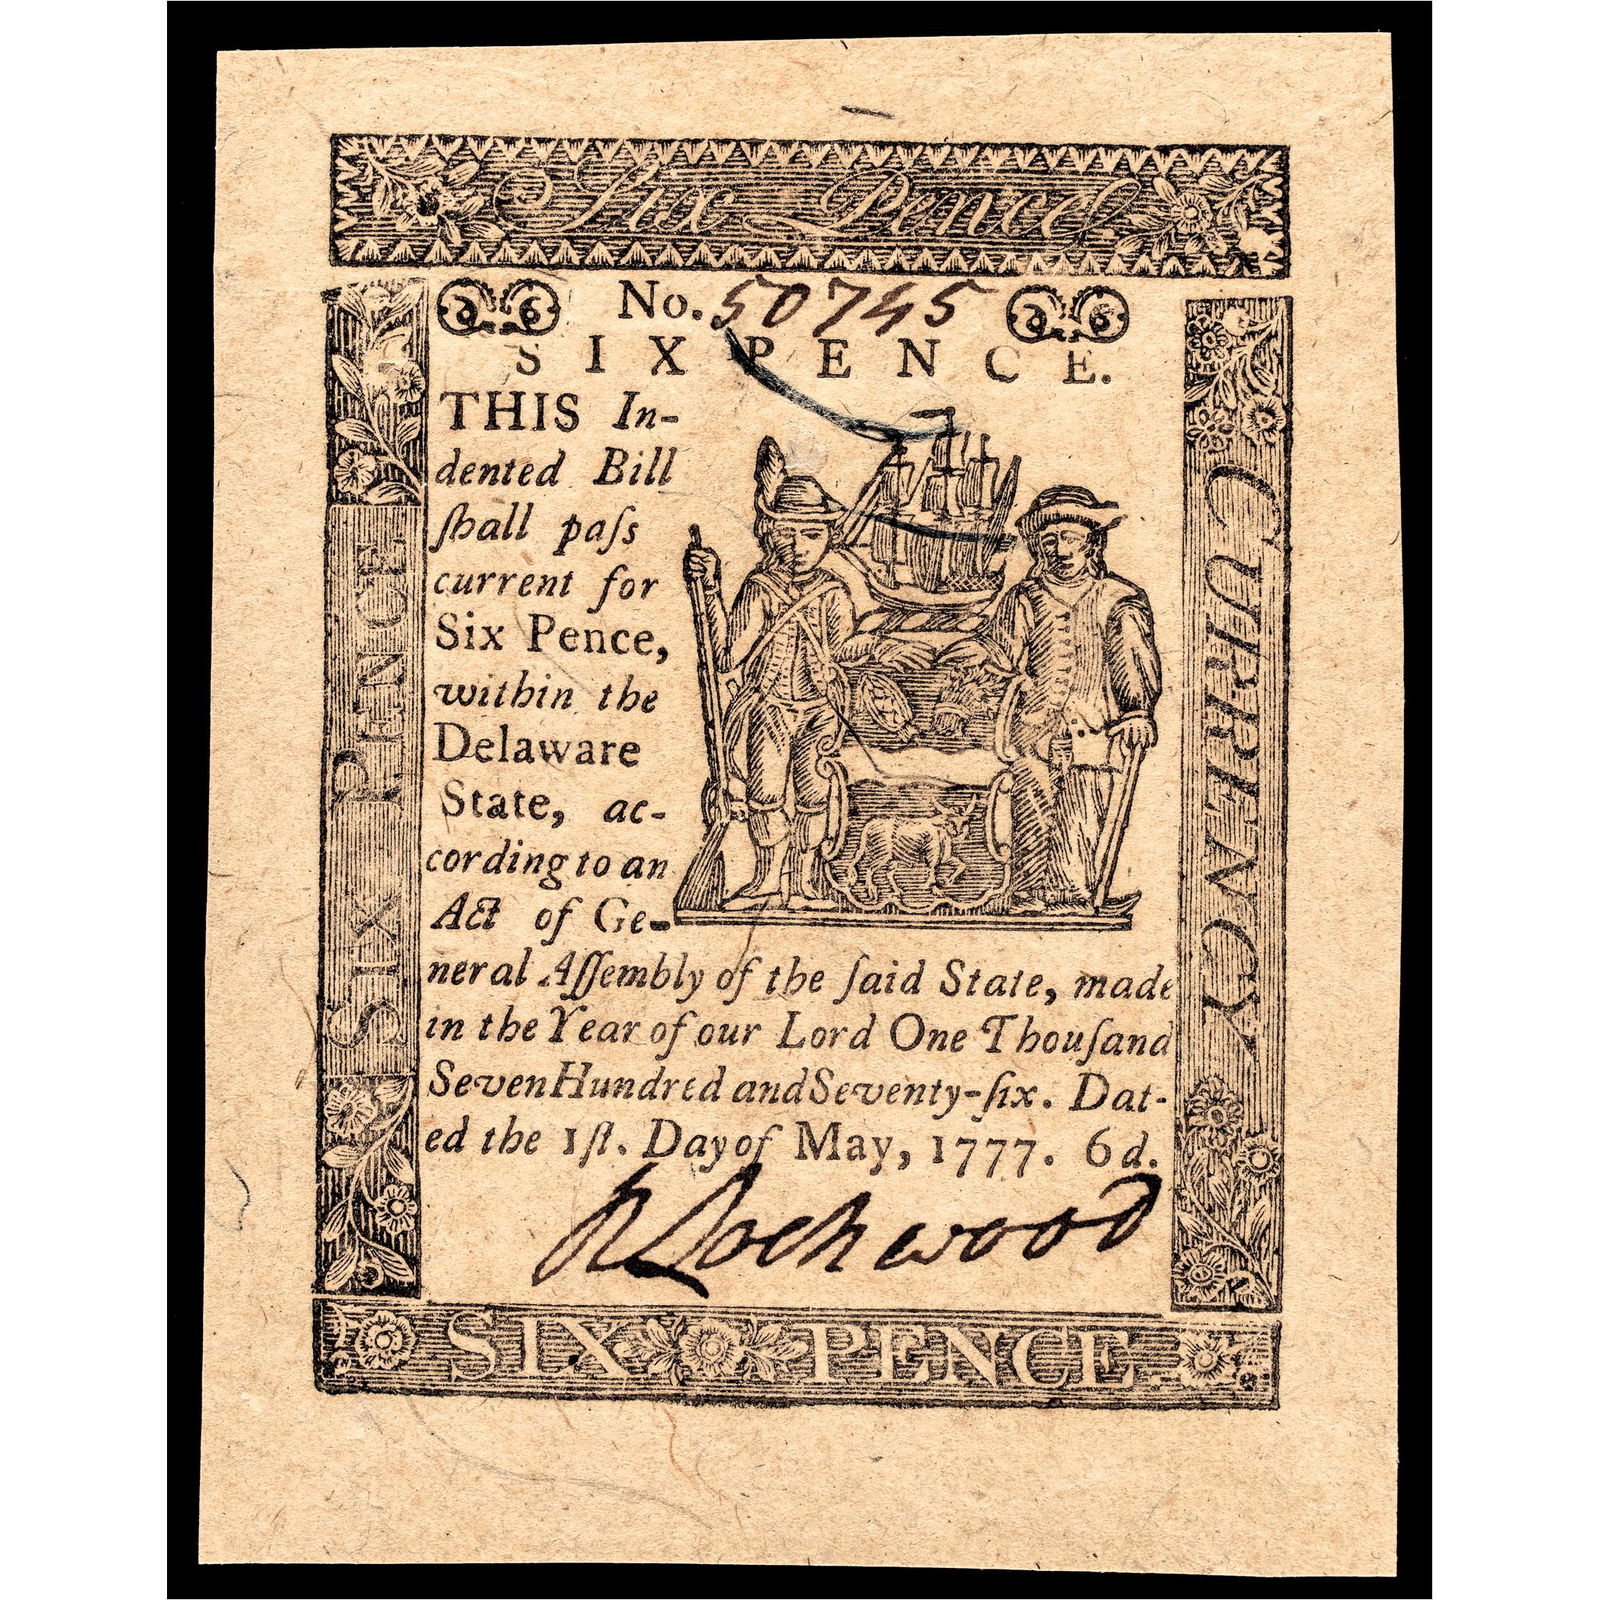 Six Pence
No. 50745
SIX PENCE.
THIS In-
dented Bill
ſhall paſs
current for
Six Pence,
within the
Delaware
State, ac-
cording to an
Act of Ge-
neral Aſſembly of the ſaid State, made
in the Year of our Lord One Thouſand
Seven Hundred and Seventy-ſix. Dat-
ed the 1ſt. Day of May, 1777. 6d.
R Lockwood
SIX PENCE
CURRENCY
SIX PENCE